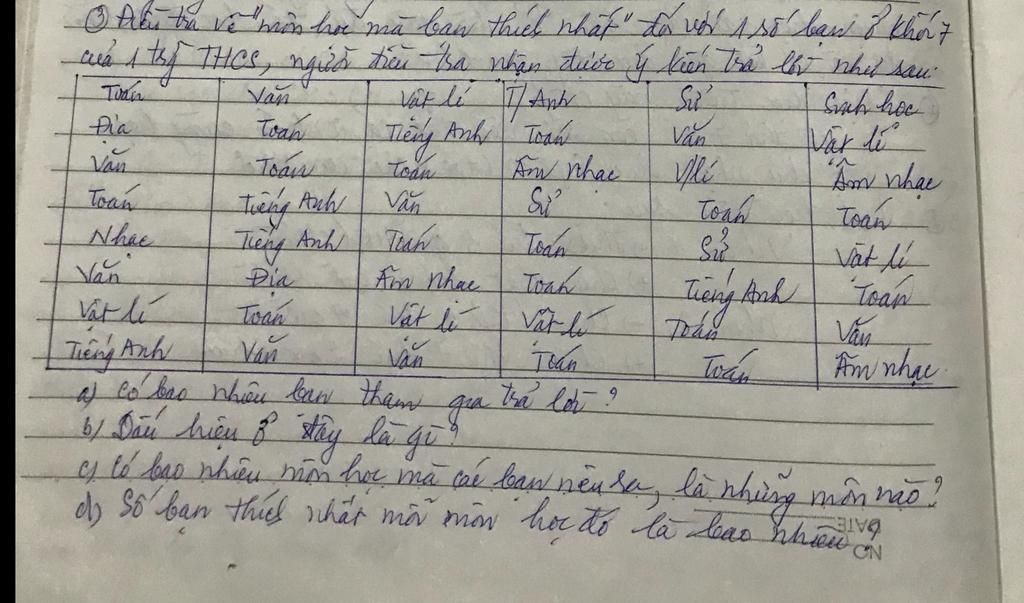 ③ Điều tra về "môn học mà bạn thích nhất" đối với 1 số bạn ở khối 7
của 1 trg THCS, người điều tra nhận được ý kiến trả lời như sau:
Toán Văn Vật lí T/Anh Sử Sinh học
Địa Toán Tiếng Anh Toán Văn Vật lí
Văn Toán Toán Âm nhạc V/lí Âm nhạc
Toán Tiếng Anh Văn Sử Toán Toán
Nhạc Tiếng Anh Toán Toán Sử Vật lí
Văn Địa Âm nhạc Toán Tiếng Anh Toán
Vật lí Toán Vật lí Vật lí Toán Văn
Tiếng Anh Văn Văn Toán Toán Âm nhạc
a) Có bao nhiêu bạn tham gia trả lời?
b) Dấu hiệu ở đây là gì?
c) Có bao nhiêu môn học mà các bạn nêu ra, là những môn nào?
d) Số bạn thích nhất mỗi môn học đó là bao nhiêu?
DATE
NO